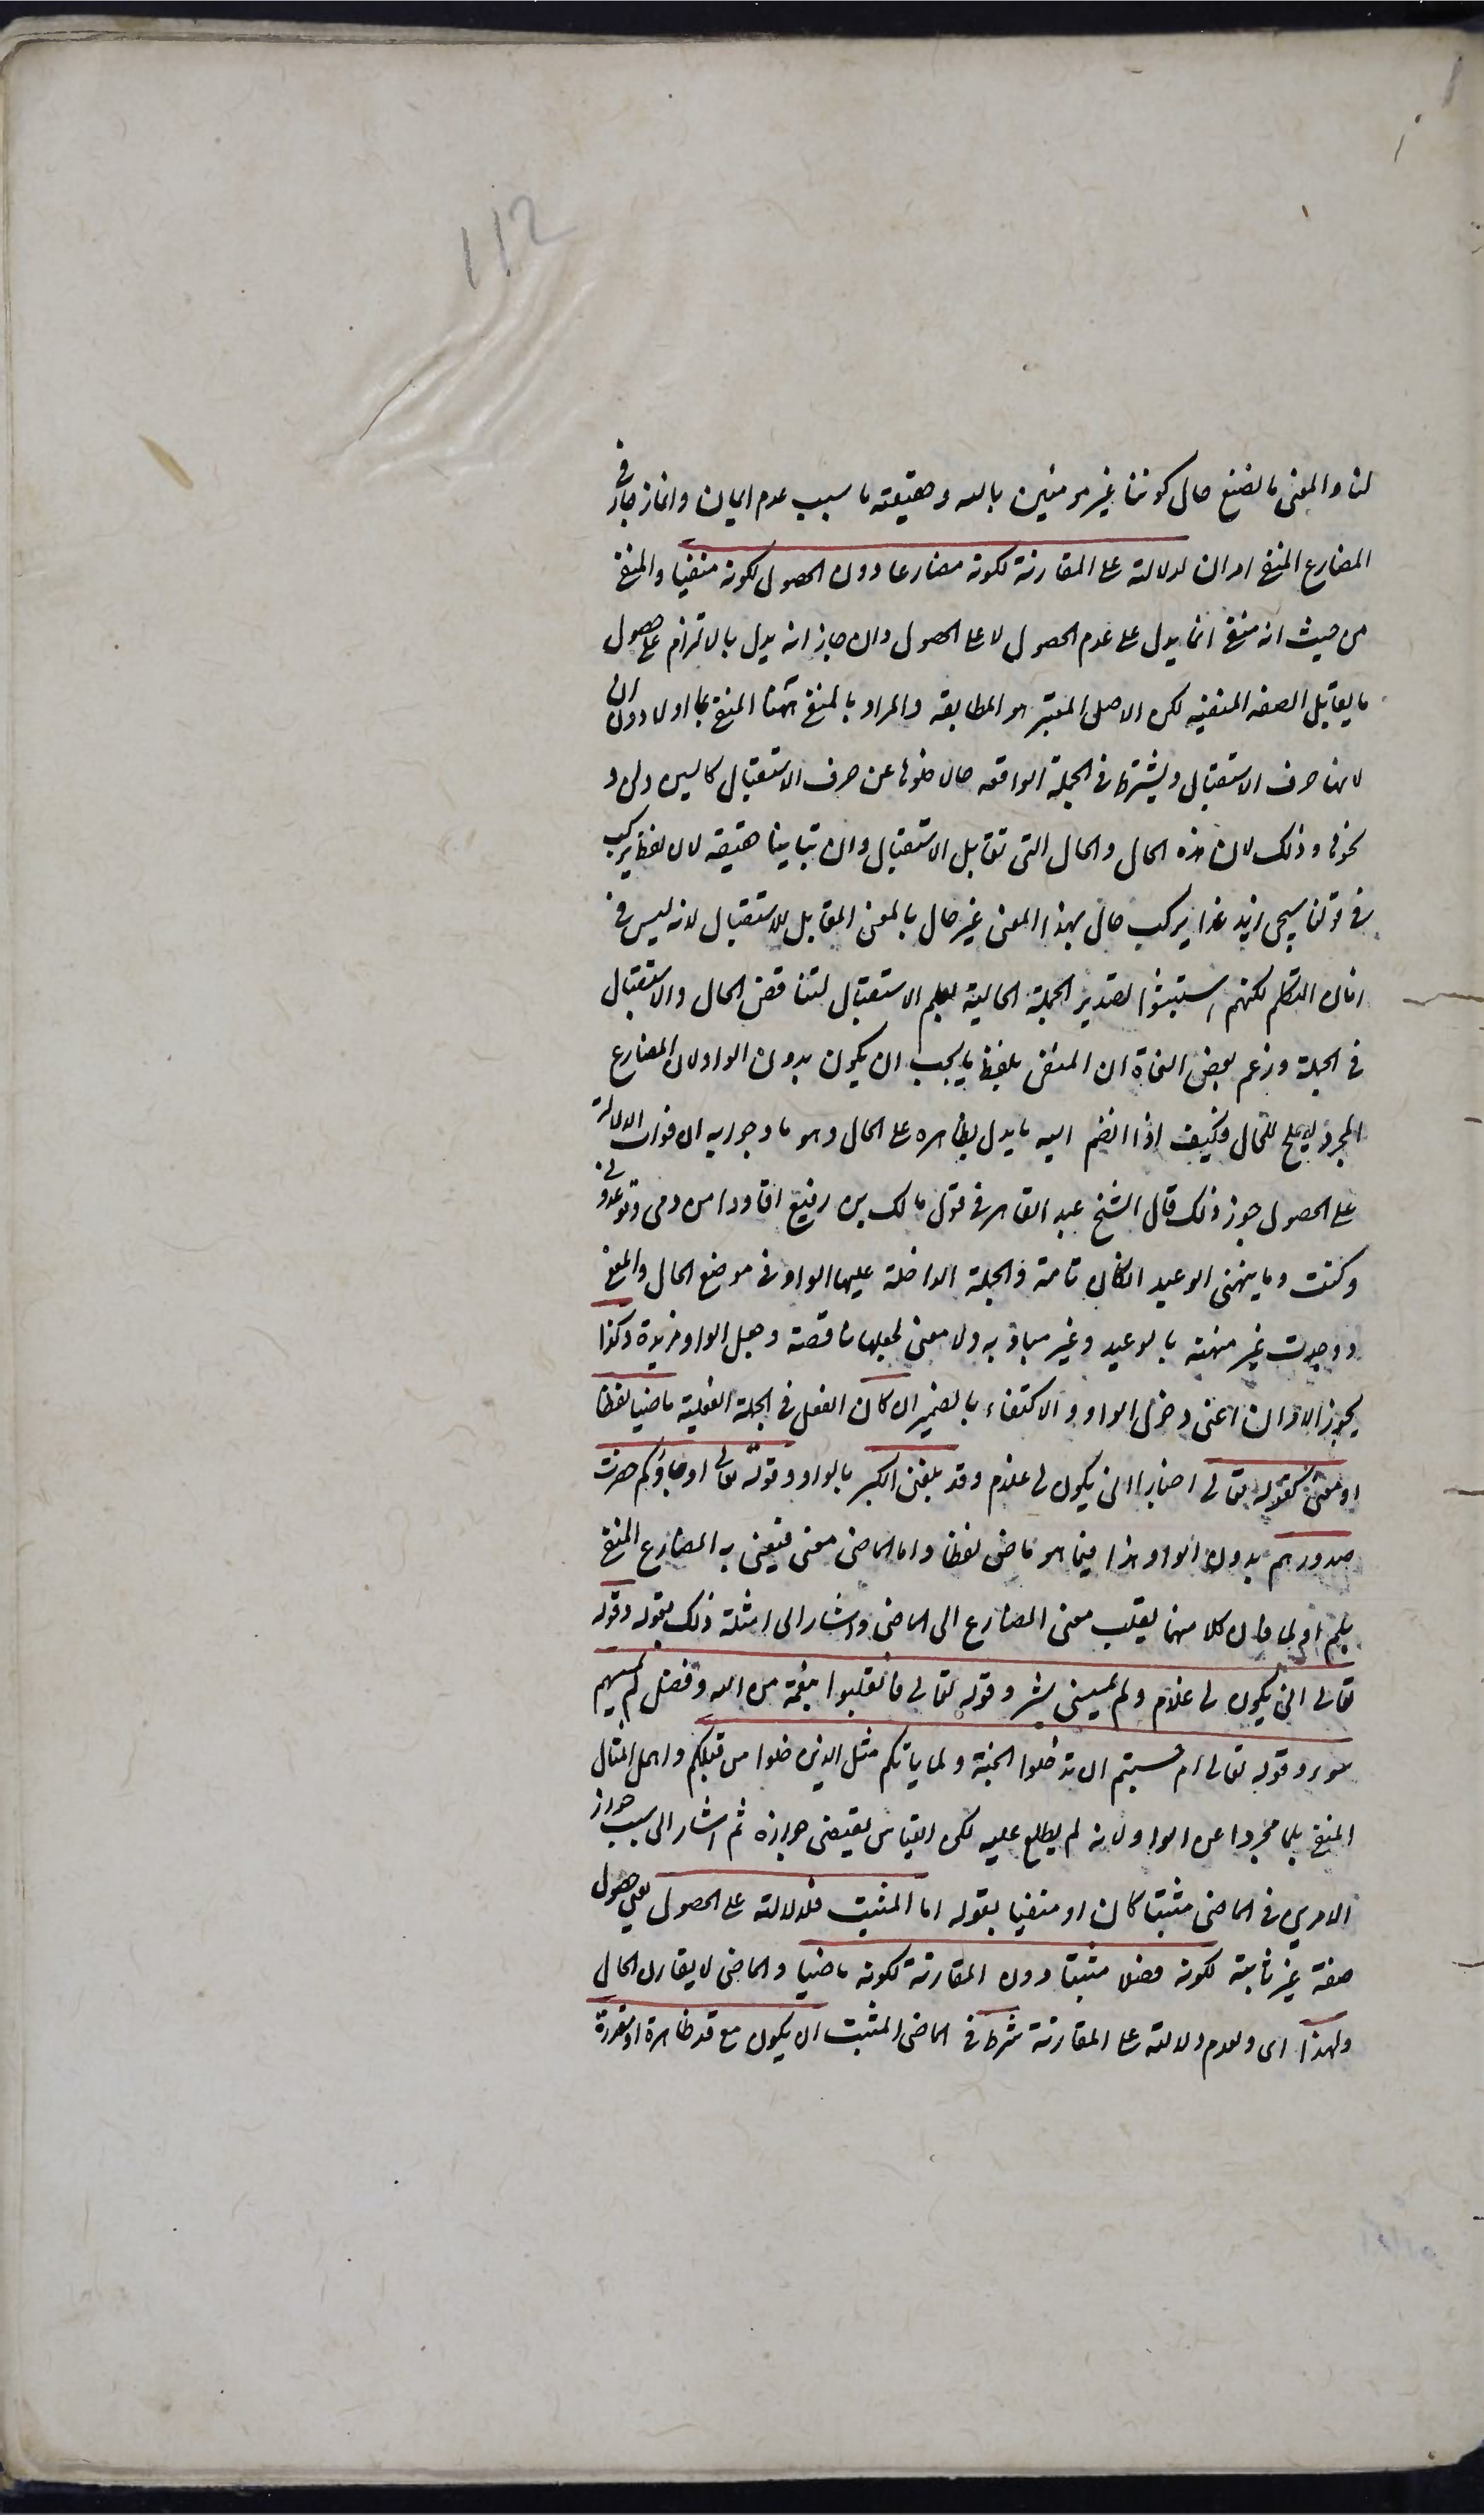 112
لنا والمعنى ما نصنع حال كوننا غير مومنين بالله وحقيقته ما سبب عدم ايمان وانما جاز في
المضارع المنفى امران لدلالته على المقارنة لكونه مضارعا دون الحصول لكونه منفيا والمنفى
من حيث انه منفى انما يدل على عدم الحصول لا على الحصول وان جاز انه يدل بالالتزام على حصول
ما يقابل الصفه المنفيه لكن الاصل المعتبر هو المطابقه والمراد بالمنفى ههنا المنفى بما او لا دون لن
لانها حرف الاستقبال ويشترط فى الجملة الواقعه حالا خلوها عن حرف الاستقبال كالسين ولن و
نحوها وذلك لان هذه الحال والحال التى تقابل الاستقبال وان تباينا حقيقه لان لفظ يركب
فى قولنا سيجى زيد غدا يركب حال بهذا المعنى غير حال بالمعنى المقابل للاستقبال لانه ليس فى
زمان التكلم لكنهم استبشعوا تصدير الجملة الحالية بعلم الاستقبال لتناقض الحال والاستقبال
فى الجملة وزعم بعض النحاة ان المنفى بلفظ ما يجب ان يكون بدون الواو لان المضارع
المجرد يصلح للحال فكيف اذا انضم اليه ما يدل بظاهره على الحال وهو ما وجوابه ان فوات الدلالة
على الحصول جوز ذلك قال الشيخ عبد القاهر فى قول مالك بن رفيع اقادوا من دمى وتوعدونى
وكنت وما ينهنهنى الوعيد ان كان تامة والجملة الداخلة عليها الواو فى موضع الحال والمعنى
ووجدت غير منهنه بالوعيد وغير مبال به ولا معنى لجعلها ناقصة وجعل الواو مزيدة وكذا
يجوز الامران اعنى دخول الواو والاكتفاء بالضمير ان كان الفعل فى الجملة الفعلية ماضيا لفظا
او معنى كقوله تعالى اخبارا انى يكون لى غلام وقد بلغنى الكبر بالواو وقوله تعالى او جاؤكم حصرت
صدورهم بدون الواو هذا فيما هو ماض لفظا واما الماضى معنى فيعنى به المضارع المنفى
بلم او لما فان كلا منهما يقلب معنى المضارع الى الماضى واشار الى امثلة ذلك بقوله وقوله
تعالى انى يكون لى غلام ولم يمسسنى بشر وقوله تعالى فانقلبوا بنعمة من الله وفضل لم يمسسهم
سوء وقوله تعالى ام حسبتم ان تدخلوا الجنة ولما ياتكم مثل الذين خلوا من قبلكم واهمل المثال
المنفى بلما مجردا عن الواو لانه لم يطلع عليه لكن القياس يقتضى جوازه ثم اشار الى سبب جواز
الامرين فى الماضى مثبتا كان او منفيا بقوله اما المثبت فلدلالته على الحصول يعنى حصول
صفة غير ثابتة لكونه فعلا مثبتا دون المقارنة لكونه ماضيا والماضى لا يقارن الحال
ولهذا اى ولعدم دلالته على المقارنة شرط فى الماضى المثبت ان يكون مع قد ظاهرة او مقدرة